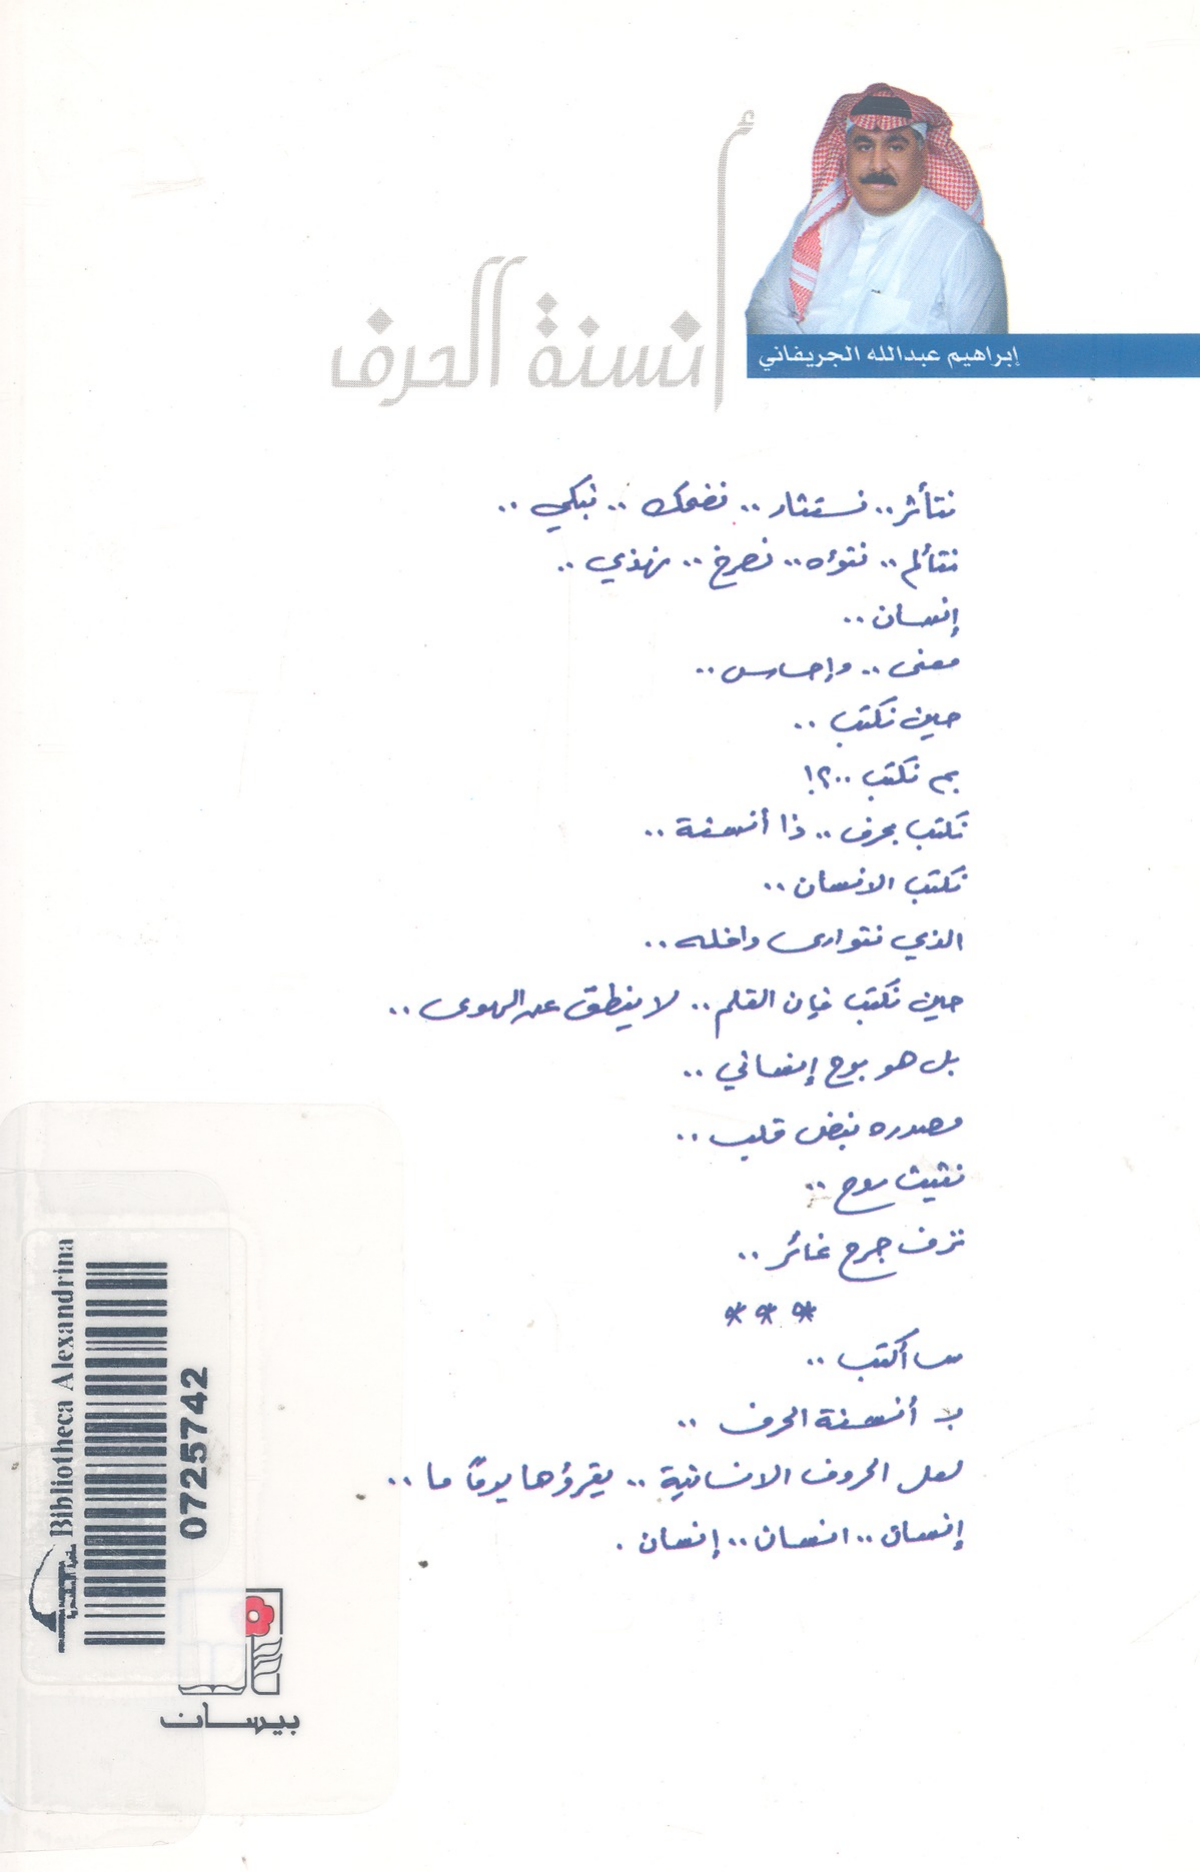 أنسنة الحرف
إبراهيم عبدالله الجريفاني
نتأثر.. نستثار .. نضحك .. نبكي ..
نتألم .. نتوه .. نصرخ .. نهذي ..
إنسان ..
معنى .. وإحساس ..
حين نكتب ..
بم نكتب ..؟!
نكتب بحرف .. ذا أنسنة ..
نكتب الانسان ..
الذي نتوارى داخله ..
حين نكتب فإن القلم .. لا ينطق عن الهوى ..
بل هو بوح إنساني ..
مصدره نبض قلب ..
روح ..
نزف جرح غائر ..
***
سأكتب ..
بـ أنسنة الحرف ..
لعل الحروف الانسانية .. يقرؤها يومًا ما ..
إنسان .. انسان .. إنسان .
Bibliotheca Alexandrina
0725742
بيسان